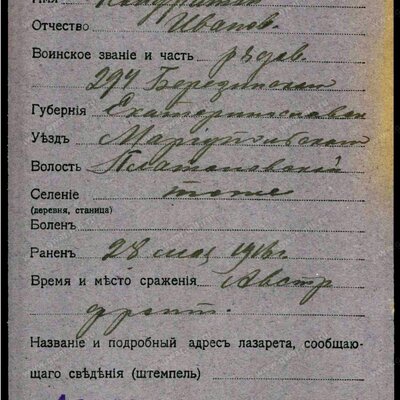 Имя Кондратій
Отчество Иванов.
Воинское званіе и часть рядов.
294 Березинскій
Губернія Екатеринославск
Уѣздъ Маріупольскій
Волость Платоновскій
Селеніе тоже
(деревня, станица)
Боленъ
Раненъ 28 мая 1916 г.
Время и мѣсто сраженія Австр
фронт.
Названіе и подробный адресъ лазарета, сообщаю-
щаго свѣдѣнія (штемпель)